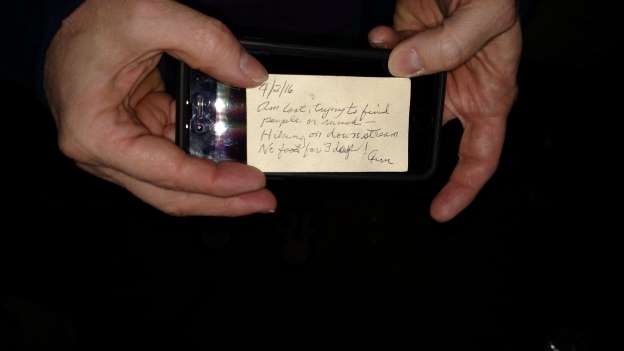 4/2/16
Am lost, trying to find
people or ranch —
Hiking on downstream
No food for 3 days!
Ann